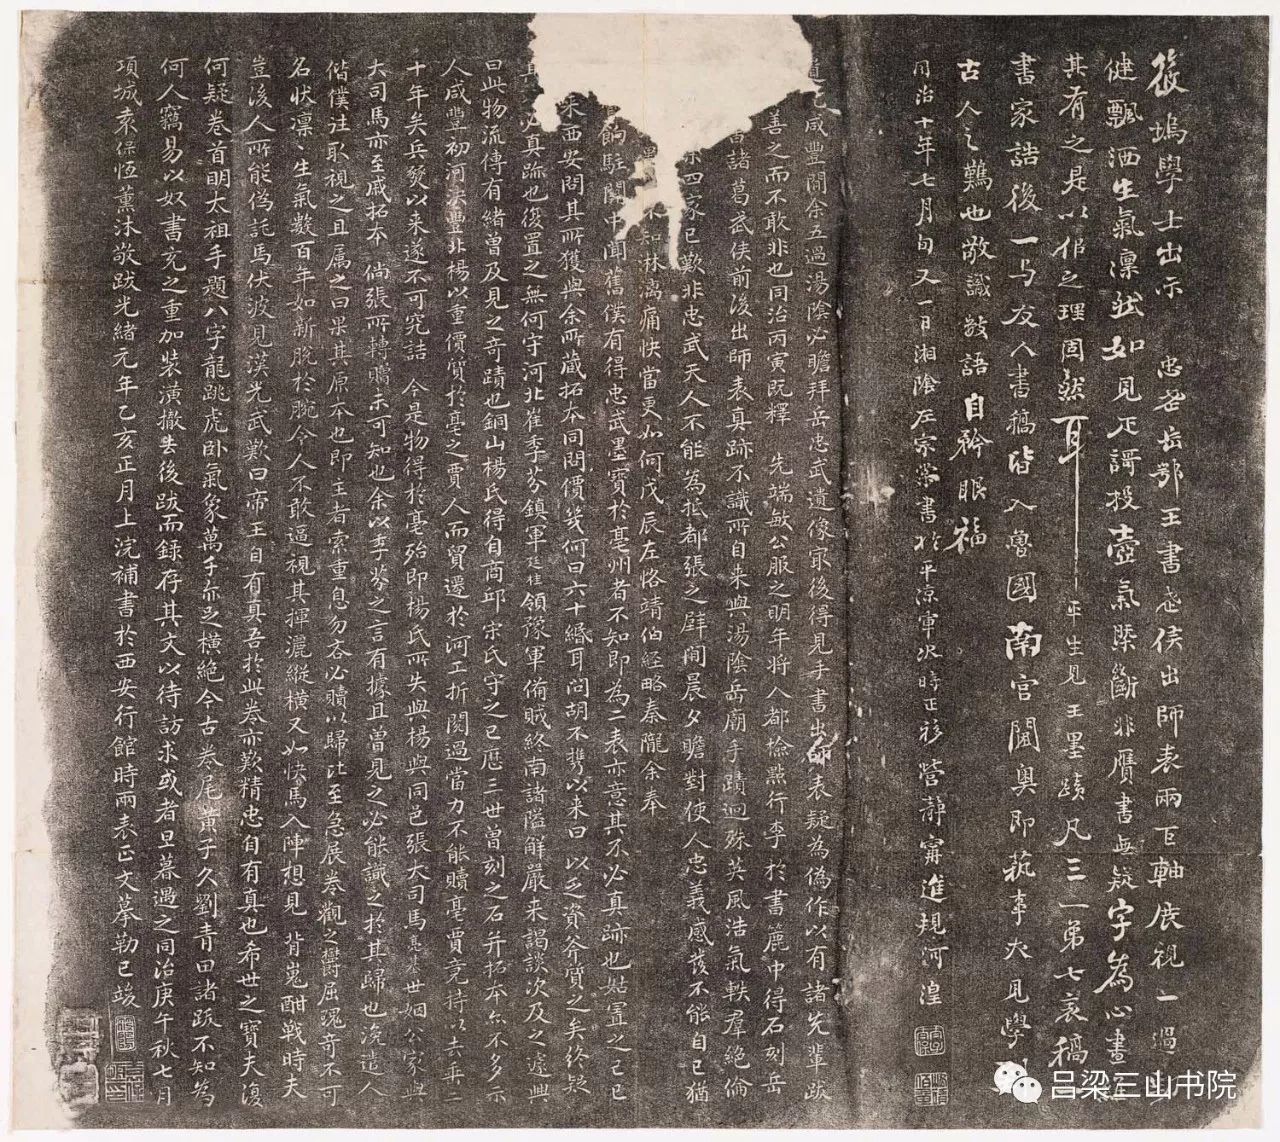 筱塢學士出示 忠武岳鄂王書武侯出師表兩巨軸展視一過
健飄洒生氣凛然如見疋謂投壺氣槩斷非贗書無疑字為心畫
其有之是以似之理固然耳平生見王墨蹟凡三一弟七哀稿
書家誥後一与友人書稿皆入魯國南宮閫奧即蓺事大見學
古人之難也敬識數語自矜眼福
同治十年七月旬又一日湘陰左宗棠書於平凉軍次時正移營靜甯進規河湟
咸豐間余五過湯陰必瞻拜岳忠武遺像家後得見手書出師表疑為偽作以有諸先輩跋
善之而不敢非也同治丙寅既釋 先端敏公服之明年将入都檢點行李於書簏中得石刻岳
書諸葛武侯前後出師表真跡不識所自来與湯陰岳廟手蹟迥殊英風浩氣軼羣絕倫
宋四家已歎非忠武天人不能為抵都張之壁間晨夕瞻對使人忠義感發不能自已猶
知淋漓痛快當更如何戊辰左恪靖伯經略秦隴余奉
餉駐關中聞舊僕有得忠武墨寶於亳州者不知即為二表亦意其不必真跡也姑置之己巳
来西安問其所獲與余所藏拓本同問價幾何曰六十緡耳問胡不攜以来曰以乏資斧質之矣終疑
必真跡也復置之無何守河北崔季芬鎮軍廷桂領豫軍備賊終南諸隘解嚴来謁談次及之遽興
曰此物流傳有緒曾及見之奇蹟也銅山楊氏得自商邱宋氏守之已歷三世曾刻之石并拓本亦不多示
人咸豐初河决豐北楊以重價質於亳之賈人而貿遷於河工折閱過當力不能贖亳賈竟持以去垂二
十年矣兵燹以来遂不可究詰 今是物得於亳殆即楊氏所失與楊與同邑張大司馬 世姻公家與
大司馬亦至戚拓本 倘張所轉贈未可知也余以季芬之言有據且曾見之必能識之於其歸也浼遣人
偕僕往取視之且属之曰果其原本也即主者索重息勿吝必贖以歸比至急展卷觀之鬱屈瑰奇不可
名状凛凛生氣數百年如新脫於腕令人不敢逼視其揮灑縱橫又如快馬入陣想見 背嵬酣戰時夫
豈後人所能偽託馬伏波見漢光武歎曰帝王自有真吾於此卷亦歎精忠自有真也希世之寶夫復
何疑卷首明太祖手題八字龍跳虎卧氣象萬千亦足橫絕今古卷尾黄子久劉青田諸跋不知為
何人竊易以奴書充之重加裝潢撤去後跋而録存其文以待訪求或者旦暮遇之同治庚午秋七月
項城袁保恒薰沐敬跋光緒元年乙亥正月上浣補書於西安行館時兩表正文摹勒已竣
吕梁三山书院